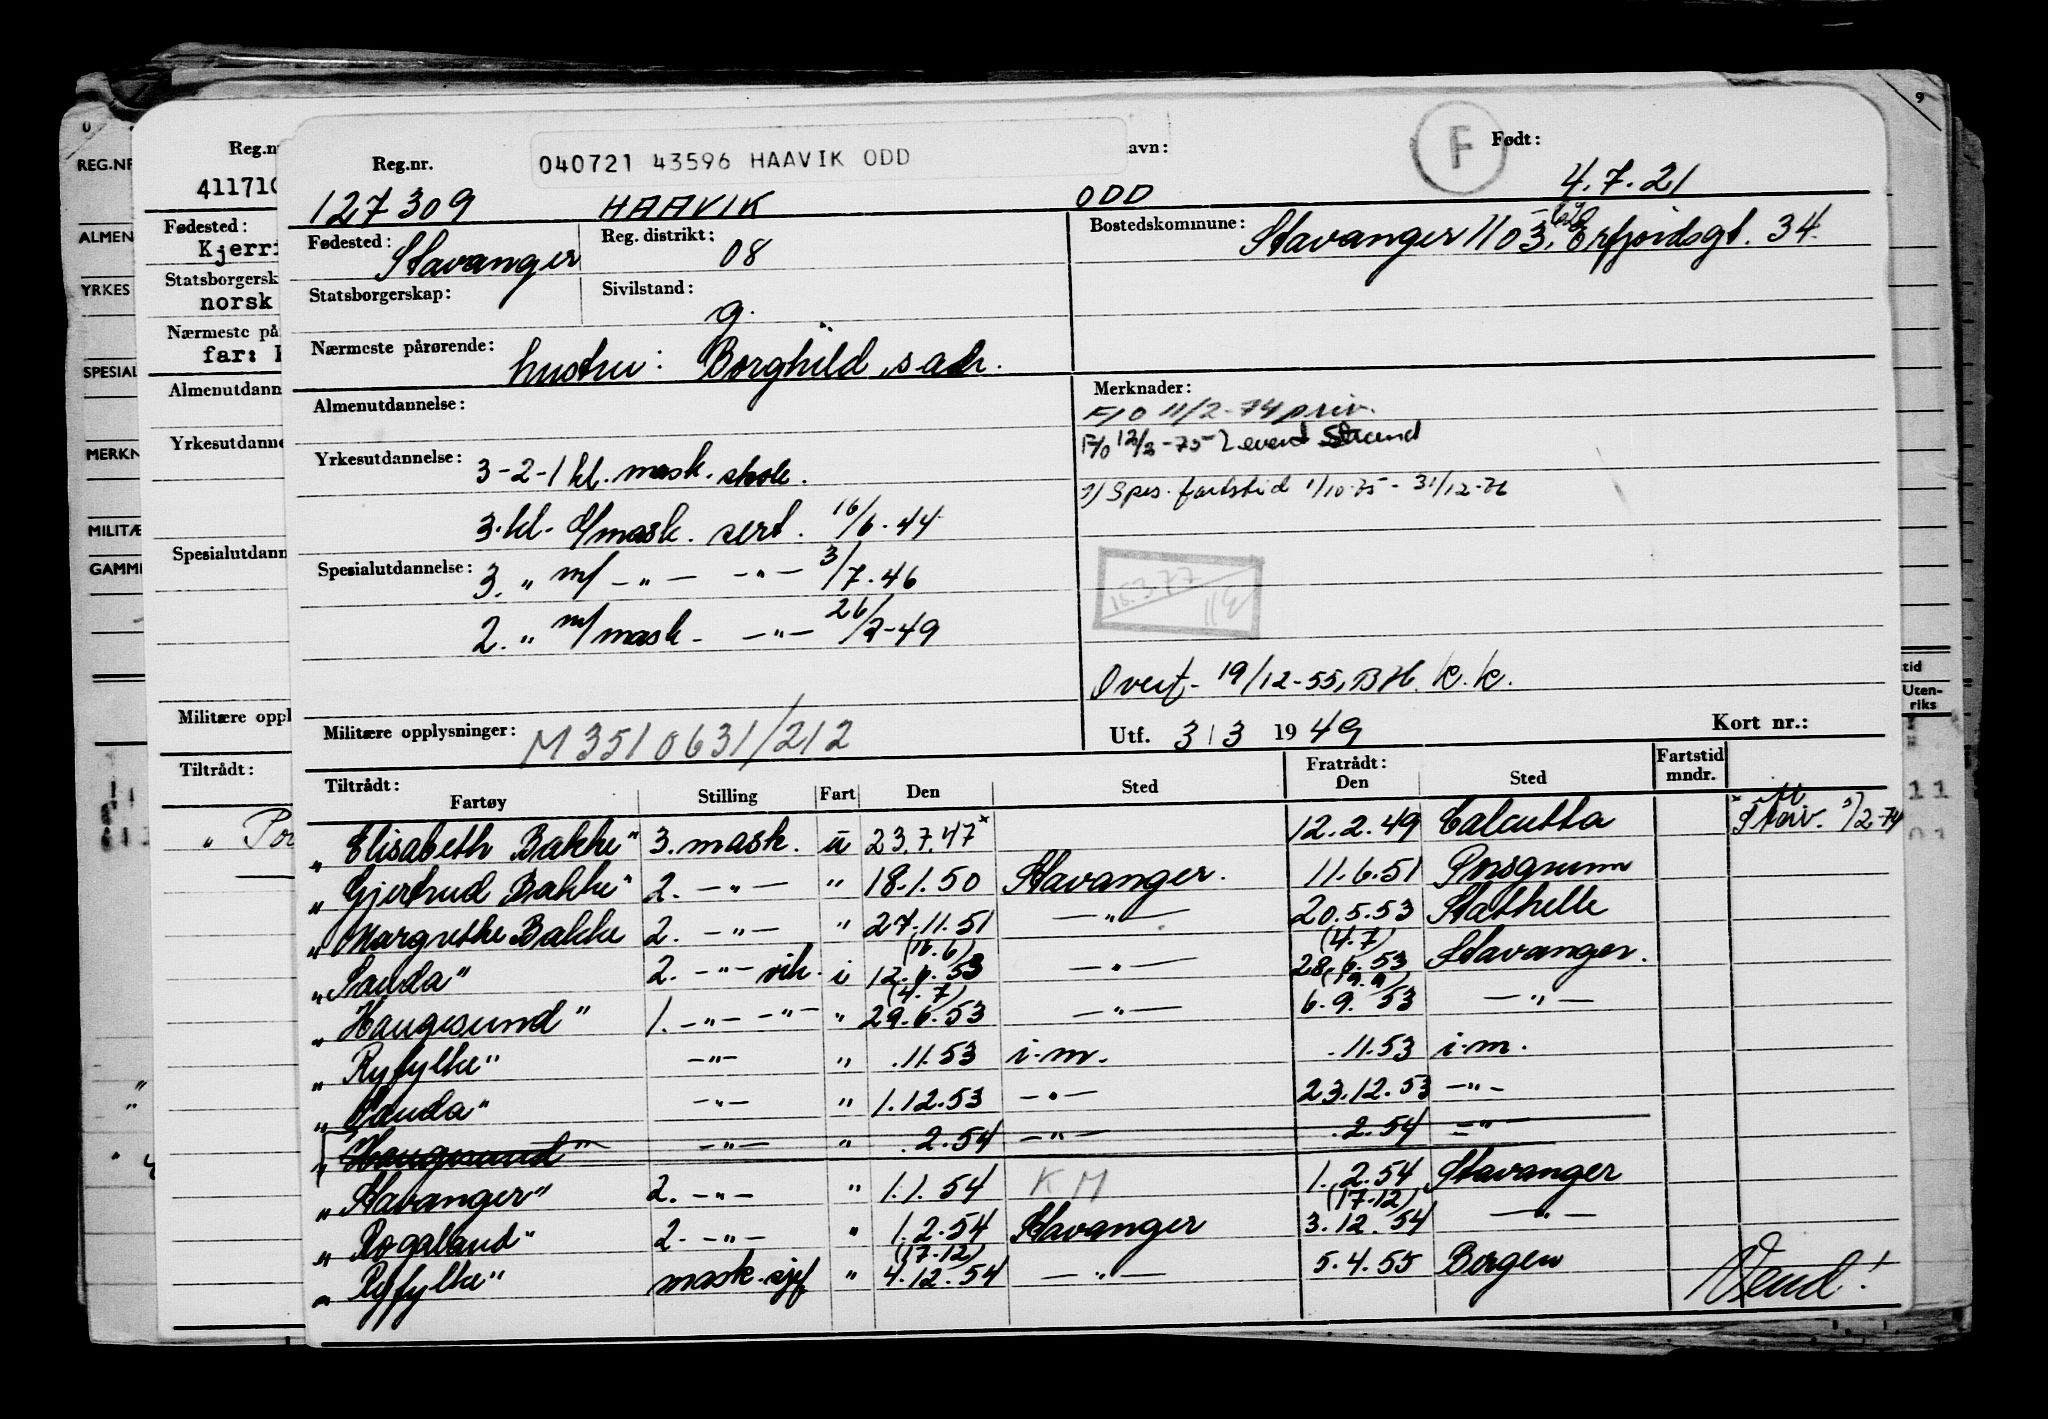 040721 43596 HAAVIK ODD
Reg.nr. avn: F Født:
127309 HAAVIK ODD 4.7.21
Fødested: Stavanger Reg. distrikt: 08 Bostedskommune: Stavanger 1103, Erfjordsgt. 34.
Statsborgerskap: Sivilstand: g.
Nærmeste pårørende: hustru: Borghild, s adr.
Almenutdannelse: Merknader:
F/O 11/2-74 priv.
F/O 12/2-75
Yrkesutdannelse: 3-2-1 kl. mask. skole.
1) Spes. fartstid 1/10-75 - 31/12-76
3. kl. d/mask. sert. 16/6.44
Spesialutdannelse: 3. " m/ -"- -"- 3/7.46
15.3.77
2. " m/mask. -"- 26/2-49
Overf. 19/12-55, BH. k.k.
Militære opplysninger: M3510631/212 Utf. 3/3 1949 Kort nr.:
Tiltrådt: Fartøy Stilling Fart Den Sted Fratrådt: Den Sted Fartstid mndr.
"Elisabeth Bakke" 3. mask. u 23.7.47x 12.2.49 Calcutta
"Gjertrud Bakke" 2. -"- " 18.1.50 Stavanger. 11.6.51 Porsgrunn
"Margrethe Bakke 2. -"- " 27.11.51 -"- 20.5.53 Stathelle
(16.6) (4.7)
"Sauda" 2. -"- vik. i 12.6.53 -"- 28.6.53 Stavanger.
(4.7) (9.9)
"Haugesund" 1. -"- -"- " 29.6.53 -"- 6.9.53 -"-
"Ryfylke" -"- " .11.53 i.m. .11.53 i.m.
"Sauda" -"- " 1.12.53 -"- 23.12.53 -"-
"Haugesund" -"- " .2.54 -"- .2.54 -"-
"Stavanger" 2. -"- " 1.1.54 KM 1.2.54 Stavanger
(17.12)
"Rogaland" 2. -"- " 1.2.54 Stavanger 3.12.54 -"-
(17.12)
"Ryfylke" mask.sjef " 4.12.54 -"- 5.4.55 Bergen
Vend!
Reg.nr
411710
Fødested:
Kjerri
Statsborgersk
norsk
Nærmeste på
far:
Almenutdann
Yrkesutdanne
Spesialutdann
Militære oppl
Tiltrådt:
REG.NR
ALMEN
YRKES
SPESIAL
MERKN
MILITÆ
GAMME
9
tid
Uten-
riks
11